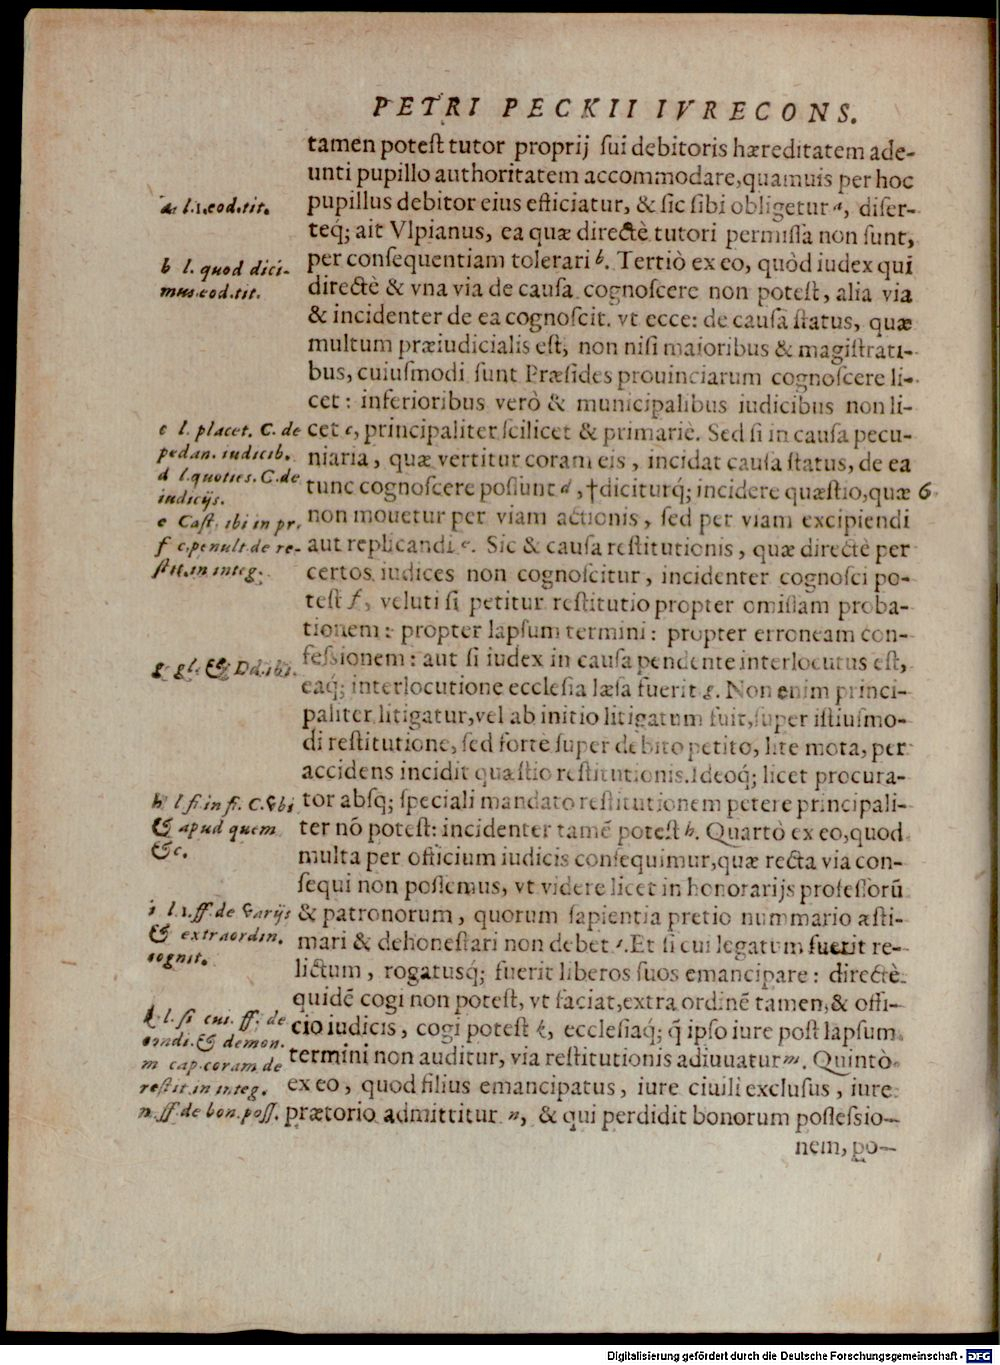 PETRI PECKII IVRECONS.
tamen potest tutor proprij sui debitoris hæreditatem ade-
unti pupillo authoritatem accommodare, quamuis per hoc
pupillus debitor eius efficiatur, & sic sibi obligetur a, diser-
teq; ait Vlpianus, ea quæ directè tutori permissa non sunt,
per consequentiam tolerari b. Tertiò ex eo, quòd iudex qui
directè & vna via de causa cognoscere non potest, alia via
& incidenter de ea cognoscit. vt ecce: de causa status, quæ
multum præiudicialis est, non nisi maioribus & magistrati-
bus, cuiusmodi sunt Præsides prouinciarum cognoscere li-
cet: inferioribus verò & municipalibus iudicibus non li-
cet c, principaliter scilicet & primariè. Sed si in causa pecu-
niaria, quæ vertitur coram eis, incidat causa status, de ea
tunc cognoscere possunt d, †diciturq; incidere quæstio, quæ 6
non mouetur per viam actionis, sed per viam excipiendi
aut replicandi e. Sic & causa restitutionis, quæ directè per
certos iudices non cognoscitur, incidenter cognosci po-
test f, veluti si petitur restitutio propter omissam proba-
tionem: propter lapsum termini: propter erroneam con-
fessionem: aut si iudex in causa pendente interlocutus est,
eaq; interlocutione ecclesia læsa fuerit g. Non enim princi-
paliter litigatur, vel ab initio litigatum fuit, super istiusmo-
di restitutione, sed fortè super debito petito, lite mota, per
accidens incidit quæstio restitutionis. Ideoq; licet procura-
tor absq; speciali mandato restitutionem petere principali-
ter nõ potest: incidenter tamẽ potest h. Quartò ex eo, quod
multa per officium iudicis consequimur, quæ recta via con-
sequi non possemus, vt videre licet in honorarijs professorũ
& patronorum, quorum sapientia pretio nummario æsti-
mari & dehonestari non debet i. Et si cui legatum fuerit re-
lictum, rogatusq; fuerit liberos suos emancipare: directè
quidẽ cogi non potest, vt faciat, extra ordinẽ tamen, & offi-
cio iudicis, cogi potest k, ecclesiaq; q̃ ipso iure post lapsum
termini non auditur, via restitutionis adiuuatur m. Quintò
ex eo, quod filius emancipatus, iure ciuili exclusus, iure
prætorio admittitur n, & qui perdidit bonorum possessio-
nem, po-
a l.1.eod.tit.
b l. quod dici-
mus.eod.tit.
c l. placet. C. de
pedan. iudicib.
d l.quoties. C.de
iudicijs.
e Cast. ibi in pr.
f c.penult.de re-
stit.in integ.
g gl. & Dd.ibi.
h l si.in fi. C.vbi
& apud quem
&c.
i l.1.ff.de varijs
& extraordin.
cognit.
k l.si cui. ff. de
condi.& demon.
m cap.coram.de
restit.in integ.
n ff.de bon.poss.
Digitalisierung gefördert durch die Deutsche Forschungsgemeinschaft - DFG